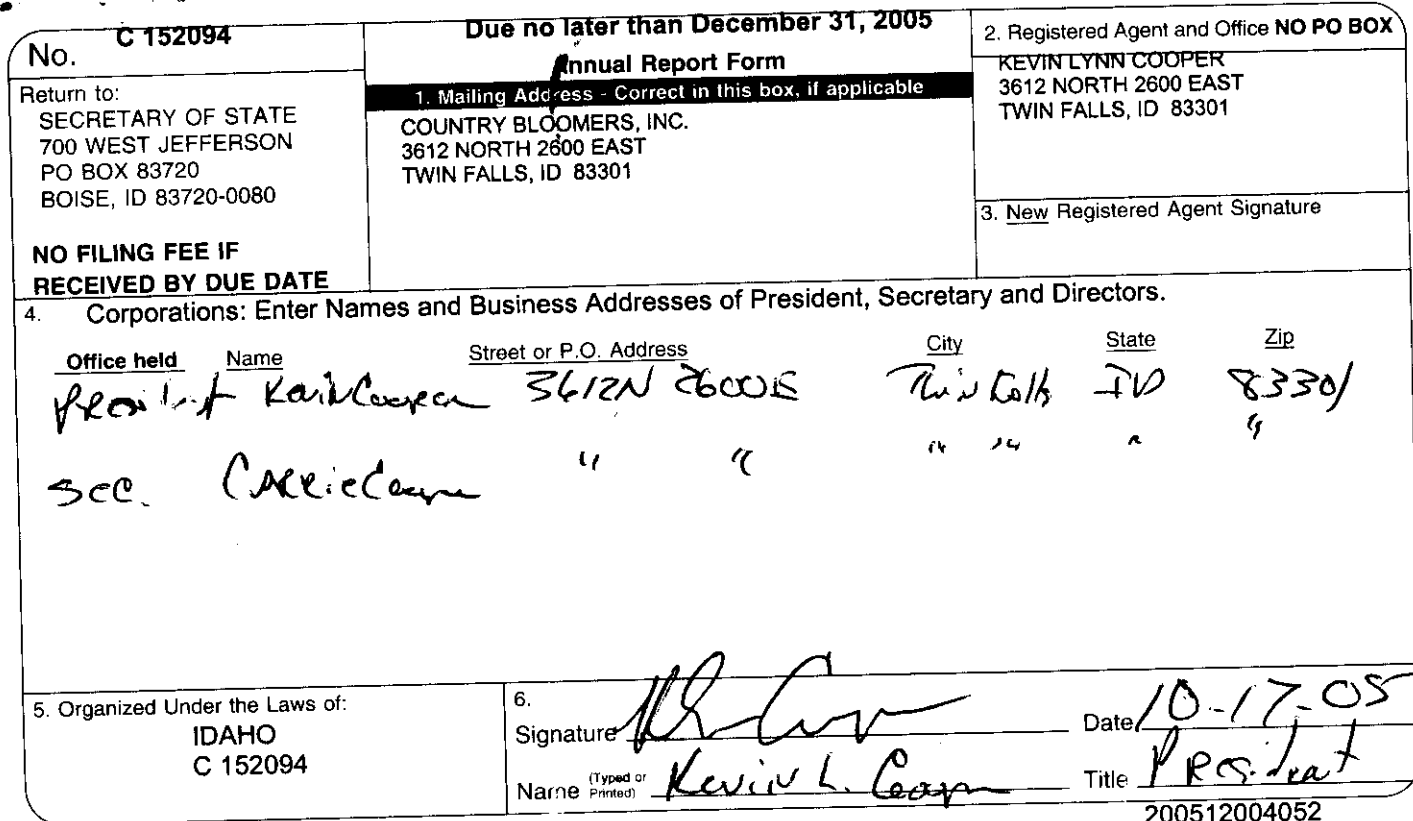 No. C 152094
Return to:
SECRETARY OF STATE
700 WEST JEFFERSON
PO BOX 83720
BOISE, ID 83720-0080
NO FILING FEE IF
RECEIVED BY DUE DATE
Due no later than December 31, 2005
Annual Report Form
1. Mailing Address - Correct in this box, if applicable
COUNTRY BLOOMERS, INC.
3612 NORTH 2600 EAST
TWIN FALLS, ID 83301
2. Registered Agent and Office NO PO BOX
KEVIN LYNN COOPER
3612 NORTH 2600 EAST
TWIN FALLS, ID 83301
3. New Registered Agent Signature
4. Corporations: Enter Names and Business Addresses of President, Secretary and Directors.
Office held Name Street or P.O. Address City State Zip
President Kevin Cooper 3612N 2600E Twin Falls ID 83301
Sec. Carrie Cooper " " " " " "
5. Organized Under the Laws of:
IDAHO
C 152094
6.
Signature Date 10-17-05
Name (Typed or Printed) Kevin L. Cooper Title President
200512004052